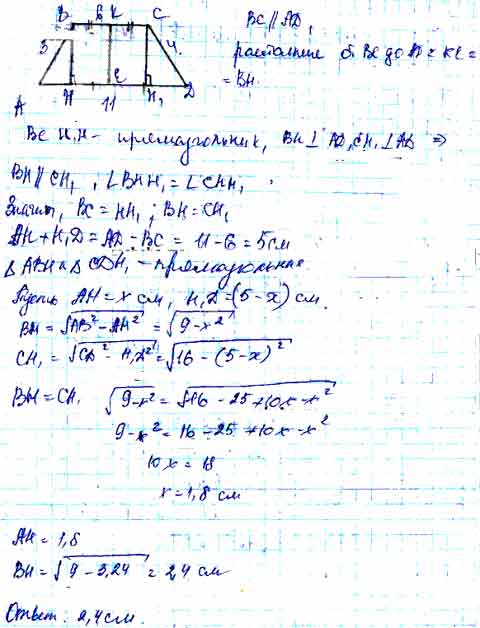 B 6 K C
3 4
A H 11 E H₁ D
BC ∥ AD,
расстояние от BC до AD = KE =
= BH
BCH₁H - прямоугольник, BH ⊥ AD, CH₁ ⊥ AD ⇒
BH ∥ CH₁, ∠BHH₁ = ∠CHH₁
Значит, BC = HH₁; BH = CH₁
AH + H₁D = AD - BC = 11 - 6 = 5 см
△ABH и △CDH₁ - прямоугольные.
Пусть AH = x см, H₁D = (5 - x) см.
BH = √AB² - AH² = √9 - x²
CH₁ = √CD² - H₁D² = √16 - (5 - x)²
BH = CH₁ √9 - x² = √16 - 25 + 10x - x²
9 - x² = 16 - 25 + 10x - x²
10x = 18
x = 1,8 см
AH = 1,8
BH = √9 - 3,24 = 2,4 см
Ответ: 2,4 см.